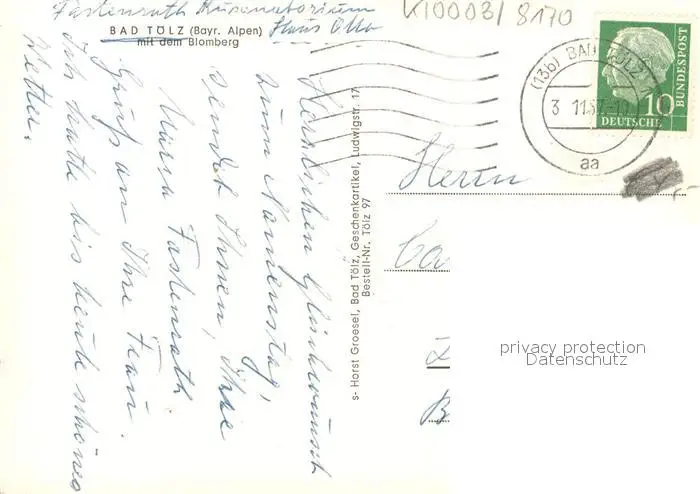 Fastenrath Kursanatorium
Haus Otto
K10003/8170
BAD TÖLZ (Bayr. Alpen)
mit dem Blomberg
Herzlichen Glückwunsch
zum Namenstag,
sendet Ihnen, Ihre
Maria Fastenrath
Gruß an Ihre Frau.
Ich hatte bis heute schönes
Wetter.
s- Horst Groesel, Bad Tölz, Geschenkartikel, Ludwigstr. 17
Bestell-Nr. Tölz 97
(13b) BAD TÖLZ
3 11 57
aa
10
DEUTSCHE
BUNDESPOST
Herrn
Ca
B
privacy protection
Datenschutz